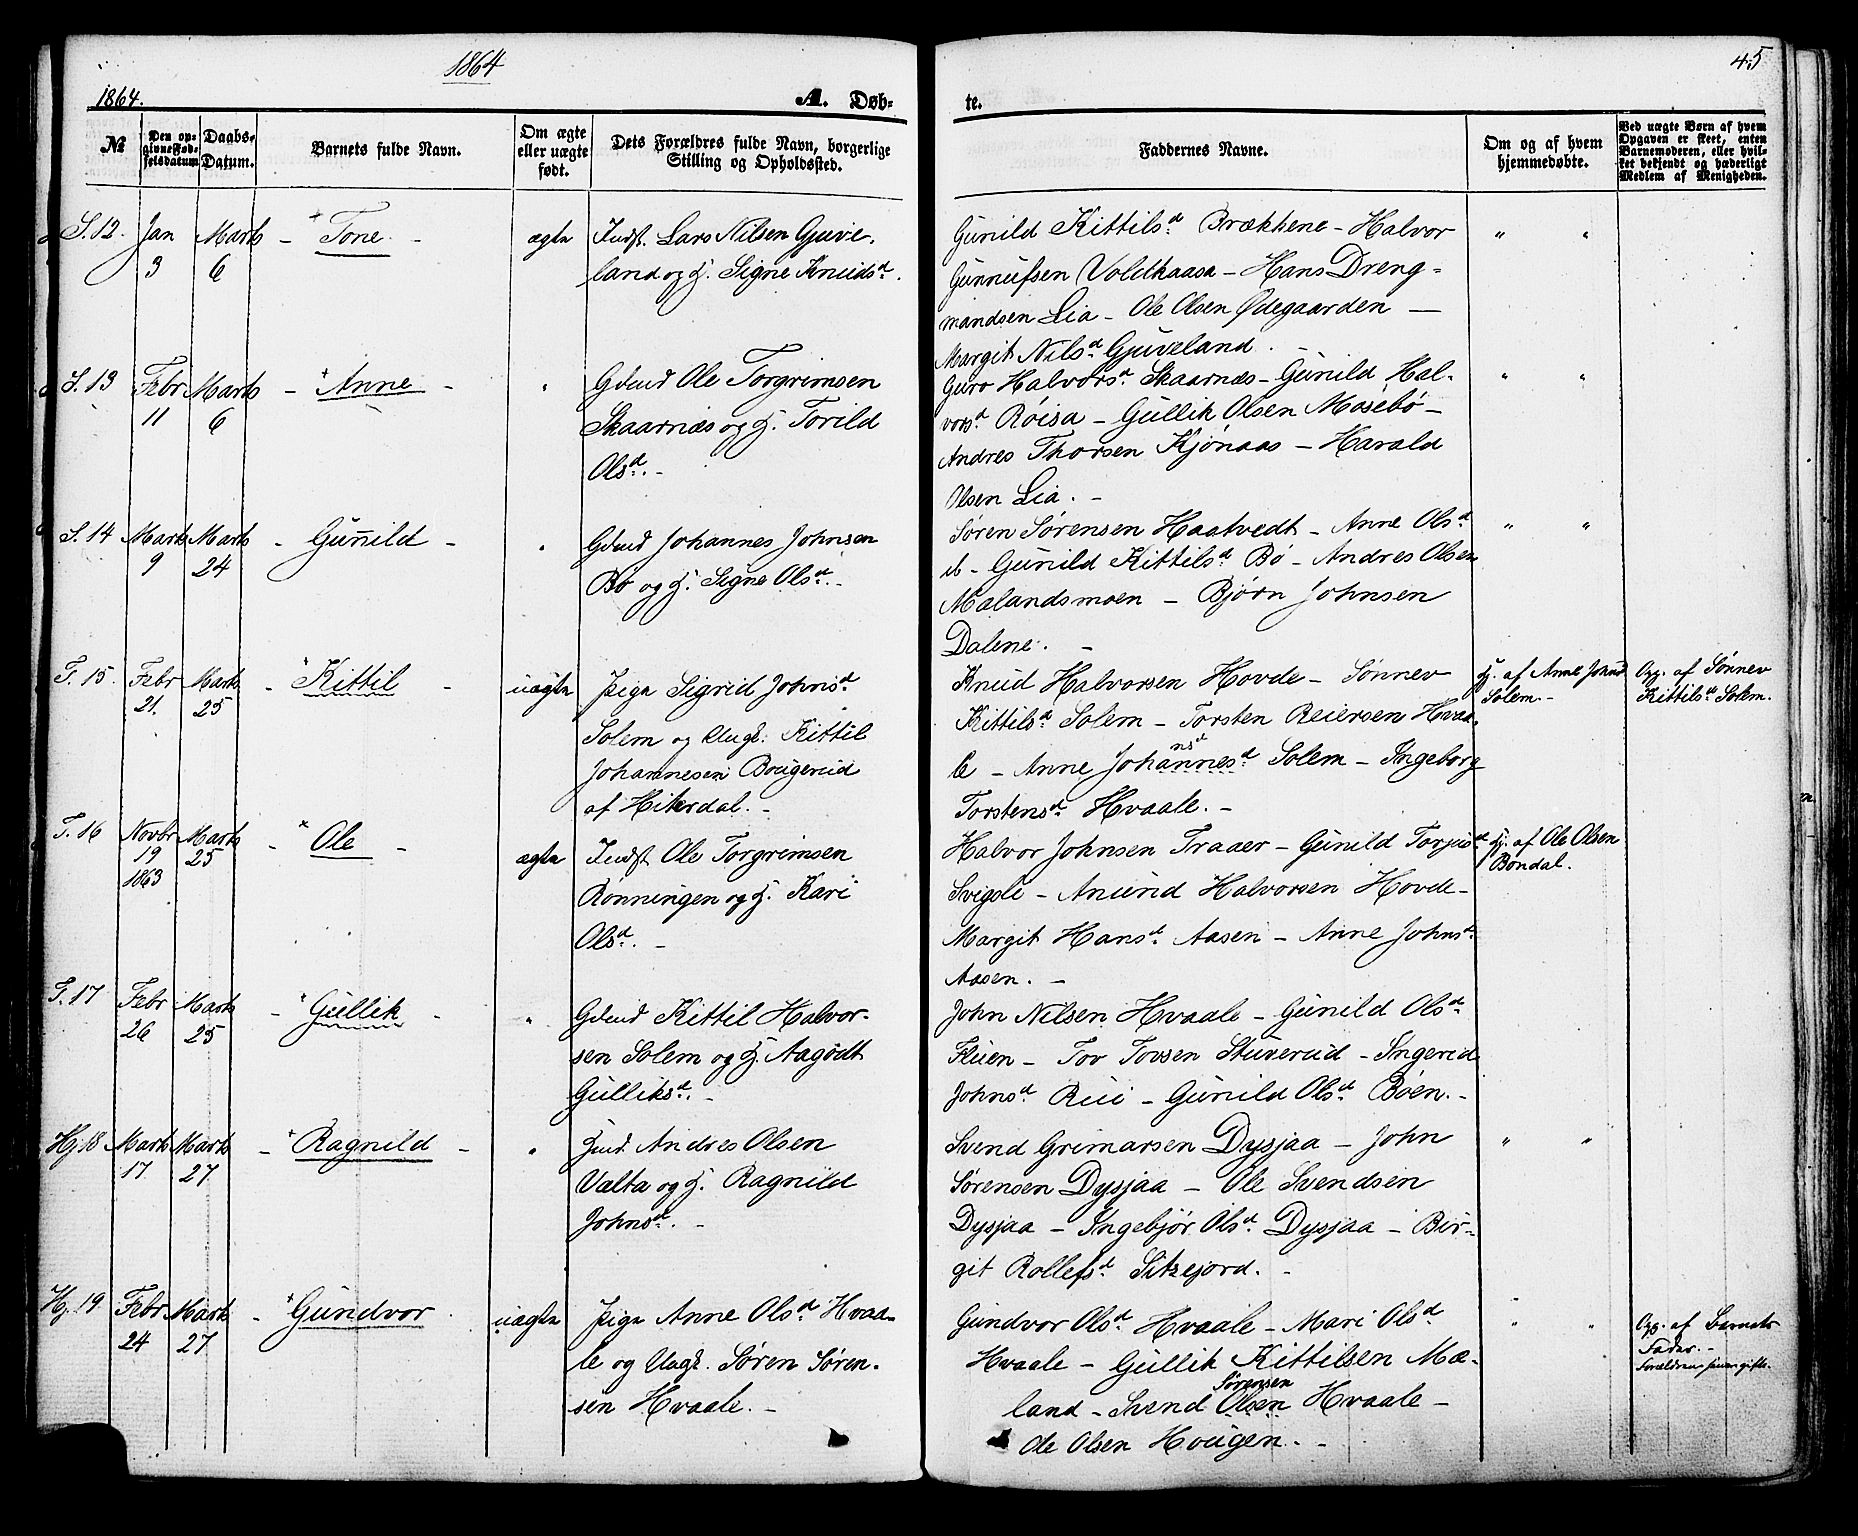 1864
45
1864.
A. Døb-
te.
№
Den op-
givne Fød-
selsdatum.
Daabs-
Datum.
Barnets fulde Navn.
Om ægte
eller uægte
født.
Dets Forældres fulde Navn, borgerlige
Stilling og Opholdssted.
Faddernes Navne.
Om og af hvem
hjemmedøbte.
Ved uægte Børn af hvem
Opgaven er skeet, enten
Barnemoderen, eller hvil-
ket bekjendt og hæderligt
Medlem af Menigheden.
S. 12. Jan 3 Marts 6 - Tone. - ægte
Indst. Lars Nilsen Gjuve-
land og H. Signe Knudsd.
Gunild Kittilsd. Brækkene - Halvor
Gunnufsen Voldkaasa - Hans Dreng-
mandsen Lia - Ole Olsen Ødegaarden -
Margit Nilsd. Gjuveland. -
" "
S. 13 Febr 11 Marts 6 - Anne - "
Gdmd Ole Torgrimsen
Skaarnæs og H. Torild
Olsd. -
Guro Halvorsd. Skaarnæs - Gunild Hal-
vorsd. Røisa - Gullik Olsen Mosebø -
Andres Thorsen Kjønaas - Harald
Olsen Lia. -
" "
S. 14 Marts 9 Marts 24 - Gunild - "
Gdmd Johannes Johnsen
Bø og H. Signe Olsd. -
Søren Sørensen Haatvedt - Anne Olsd.
ib - Gunild Kittilsd. Bø - Andres Olsen
Mælandsmoen - Bjørn Johnsen
Dalene. -
" "
T. 15. Febr 21. Marts 25 - Kittil - uægte
Pige Sigrid Johnsd.
Solem og Ungk. Kittil
Johannesen Bougerud
af Hiterdal. -
Knud Halvorsen Hovde - Sønnev
Kittilsd. Solem - Torsten Reiersen Hvaa-
le - Anne Johannesd. Solem - Ingeborg
Torstensd. Hvaale. -
Hj. af Anne Johnsd
Solem. -
Opg. af Sønnev
Kittilsd. Solem.
T. 16 Novbr 19 1863 Marts 25 - Ole - ægte
Indst Ole Torgrimsen
Rønningen og H. Kari
Olsd. -
Halvor Johnsen Traaer - Gunild Torjusd.
Svigsle - Anund Halvorsen Hovde -
Margit Hansd. Aasen - Anne Johnsd.
Aasen. -
Hj. af Ole Olsen
Bøndal.
T. 17 Febr 26 Marts 25 - Gullik - "
Gdmd Kittil Halvor-
sen Solem og H. Aagodt
Gulliksd. -
John Nilsen Hvaale - Gunild Olsd.
Kleen - Tov Tovsen Stuverud - Ingerid
Johnsd. Rui - Gunild Olsd. Bøen. -
Hj. 18 Marts 17 Marts 27 - Ragnild - "
Hmd. Andres Olsen
Valta og H. Ragnild
Johnsd. -
Svend Grimarsen Dysjaa - John
Sørensen Dysjaa - Ole Svendsen
Dysjaa - Ingebjør Olsd. Dysjaa - Bir-
git Rollefsd. Sitzejord. -
" "
Hj. 19 Febr 24 Marts 27 - Gundvor uægte
Pige Anne Olsd. Hvaa-
le og Ungk. Søren Søren-
sen Hvaale. -
Gundvor Olsd. Hvaale - Mari Olsd.
Hvaale - Gullik Kittilsen Mæ-
Sørensen
land - Svend Olsen Hvaale -
Ole Olsen Hougen. -
" "
Opg. af Barnets
Fader. -